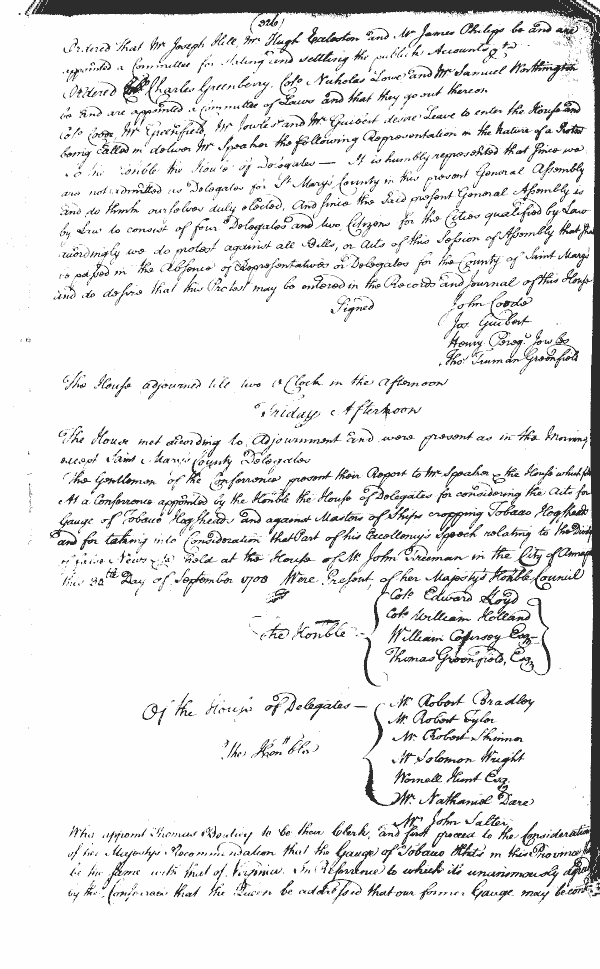 (326)
Ordered that Mr Joseph Hill, Mr Hugh Eccleston and Mr James Philips be and are
appointed a Committee for stating and settling the publick Accounts &ca
Ordered Coll Charles Greenberry, Colo Nicholas Lowe and Mr Samuel Worthington
be and are appointed a Committee of Laws and that they go out thereon
Colo Coode, Mr Greenfield, Mr Jowles and Mr Guibert desire Leave to enter the House and
being called in deliver Mr Speaker the following Representation in the Nature of a Protest
To the Honble the House of Delegates — It is humbly represented that Since we
are not admitted as Delegates for St Marys County in this present General Assembly
and do think ourselves duly elected, And since the said present General Assembly is
by Law to consist of four Delegates and two Citizens for the Cities qualified by Law
accordingly we do protest against all Bills, or Acts of this Session of Assembly that shall
be passed in the Absence of Representatives or Delegates for the County of Saint Marys
and do desire that this Protest may be entered in the Records and Journal of this House
Signed
John Coode
Jos Guibert
Henry Pereg. Jowles
Tho Truman Greenfield
The House adjourned till two o Clock in the Afternoon
Friday Afternoon
The House met according to Adjournment and were present as in the Morning
except Saint Marys County Delegates
The Gentlemen of the Conference present their Report to Mr Speaker & the House which
At a Conference appointed by the Honble the House of Delegates for considering the Acts for
Gauge of Tobacco Hogsheads and against Masters of Ships cropping Tobacco Hogsheads
and for taking into Consideration that Part of his Excellency's Speech relating to the
of false News &c held at the House of Mr John Freeman in the City of Annap
this Day of September 1708 Were Present, of her Majesty's Honble Council
the Honble
Colo Edward Lloyd
Colo William Holland
William Coursey Esqr
Thomas Greenfield, Esqr
Of the House of Delegates —
The Honble
Mr Robert Bradley
Mr Robert Tyler
Mr Robert Skinner
Mr Solomon Wright
Wornell Hunt Esq
Mr Nathaniel Dare
Mr John Salter
Who appoint Thomas to be their Clerk, and first proceed to the Consideration
of her Majesty's Recommendation that the Gauge of Tobacco Hhds in this Province
be the same with that of Virginia. In Reference to which it's unanimously
by the Conferees that the Queen be addressed that our former Gauge may be